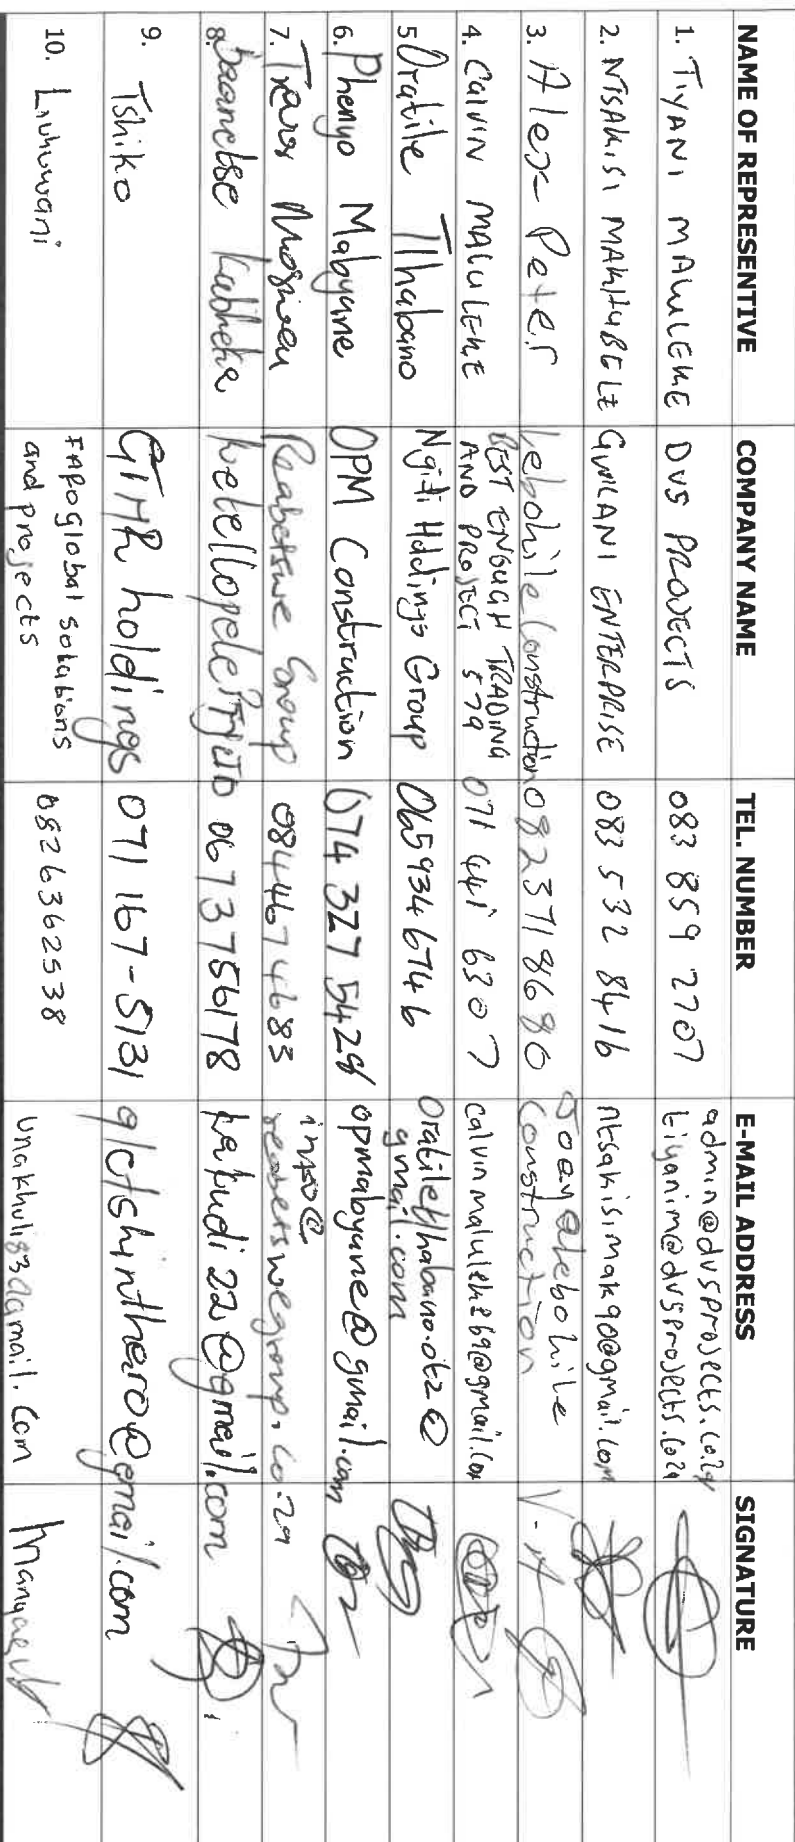 NAME OF REPRESENTIVE COMPANY NAME TEL. NUMBER E-MAIL ADDRESS SIGNATURE
1. TIYANI MALULEKE DVS PROJECTS 083 859 2707 admin@dvsprojects.co.za
tiyanim@dvsprojects.co.za
2. NTSAKISI MAKHUBELE GWALANI ENTERPRISE 083 532 8416 ntsakisimak90@gmail.com
3. Alex Peter Lebohile Construction 0823718680 Joey@lebohile
Construction
4. CALVIN MALULEKE BEST ENOUGH TRADING
AND PROJECT 579 071 441 6307 calvinmaluleke69@gmail.com
5 Oratile Tlhabano Ngiti Holdings Group 0659346746 Oratiletlhabano.otz@
gmail.com
6. Phenyo Mabyane OPM Construction 074 327 5429 opmabyane@gmail.com
7. Reabetswe Group 0844674683 info@
reabetswegroup.co.za
8. 0673756178 22@gmail.com
9. Tshiko GTHR holdings 071 167-5131 @gmail.com
10. Livhuwani FAROGlobal solutions
and projects 0826362538 unakhuli83@gmail.com